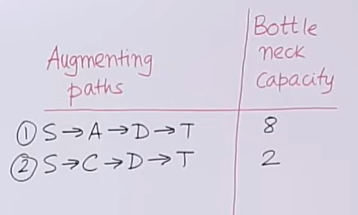 Augmenting
paths
Bottle
neck
Capacity
① S→A→D→T 8
② S→C→D→T 2